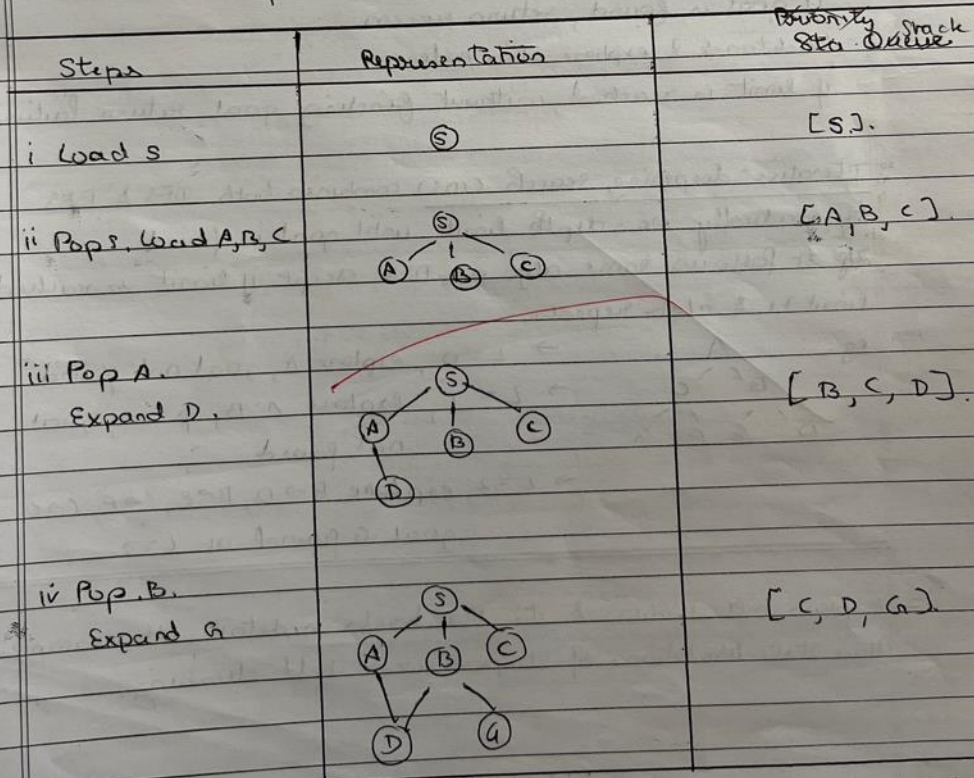 Steps
Representation
Priority Stack
Sta. Queue
i Load S
S
[S].
ii Pop S, Load A,B,C
S
A B C
[A, B, C].
iii Pop A.
Expand D.
S
A B C
D
[B, C, D].
iv Pop. B.
Expand G
S
A B C
D G
[C, D, G].